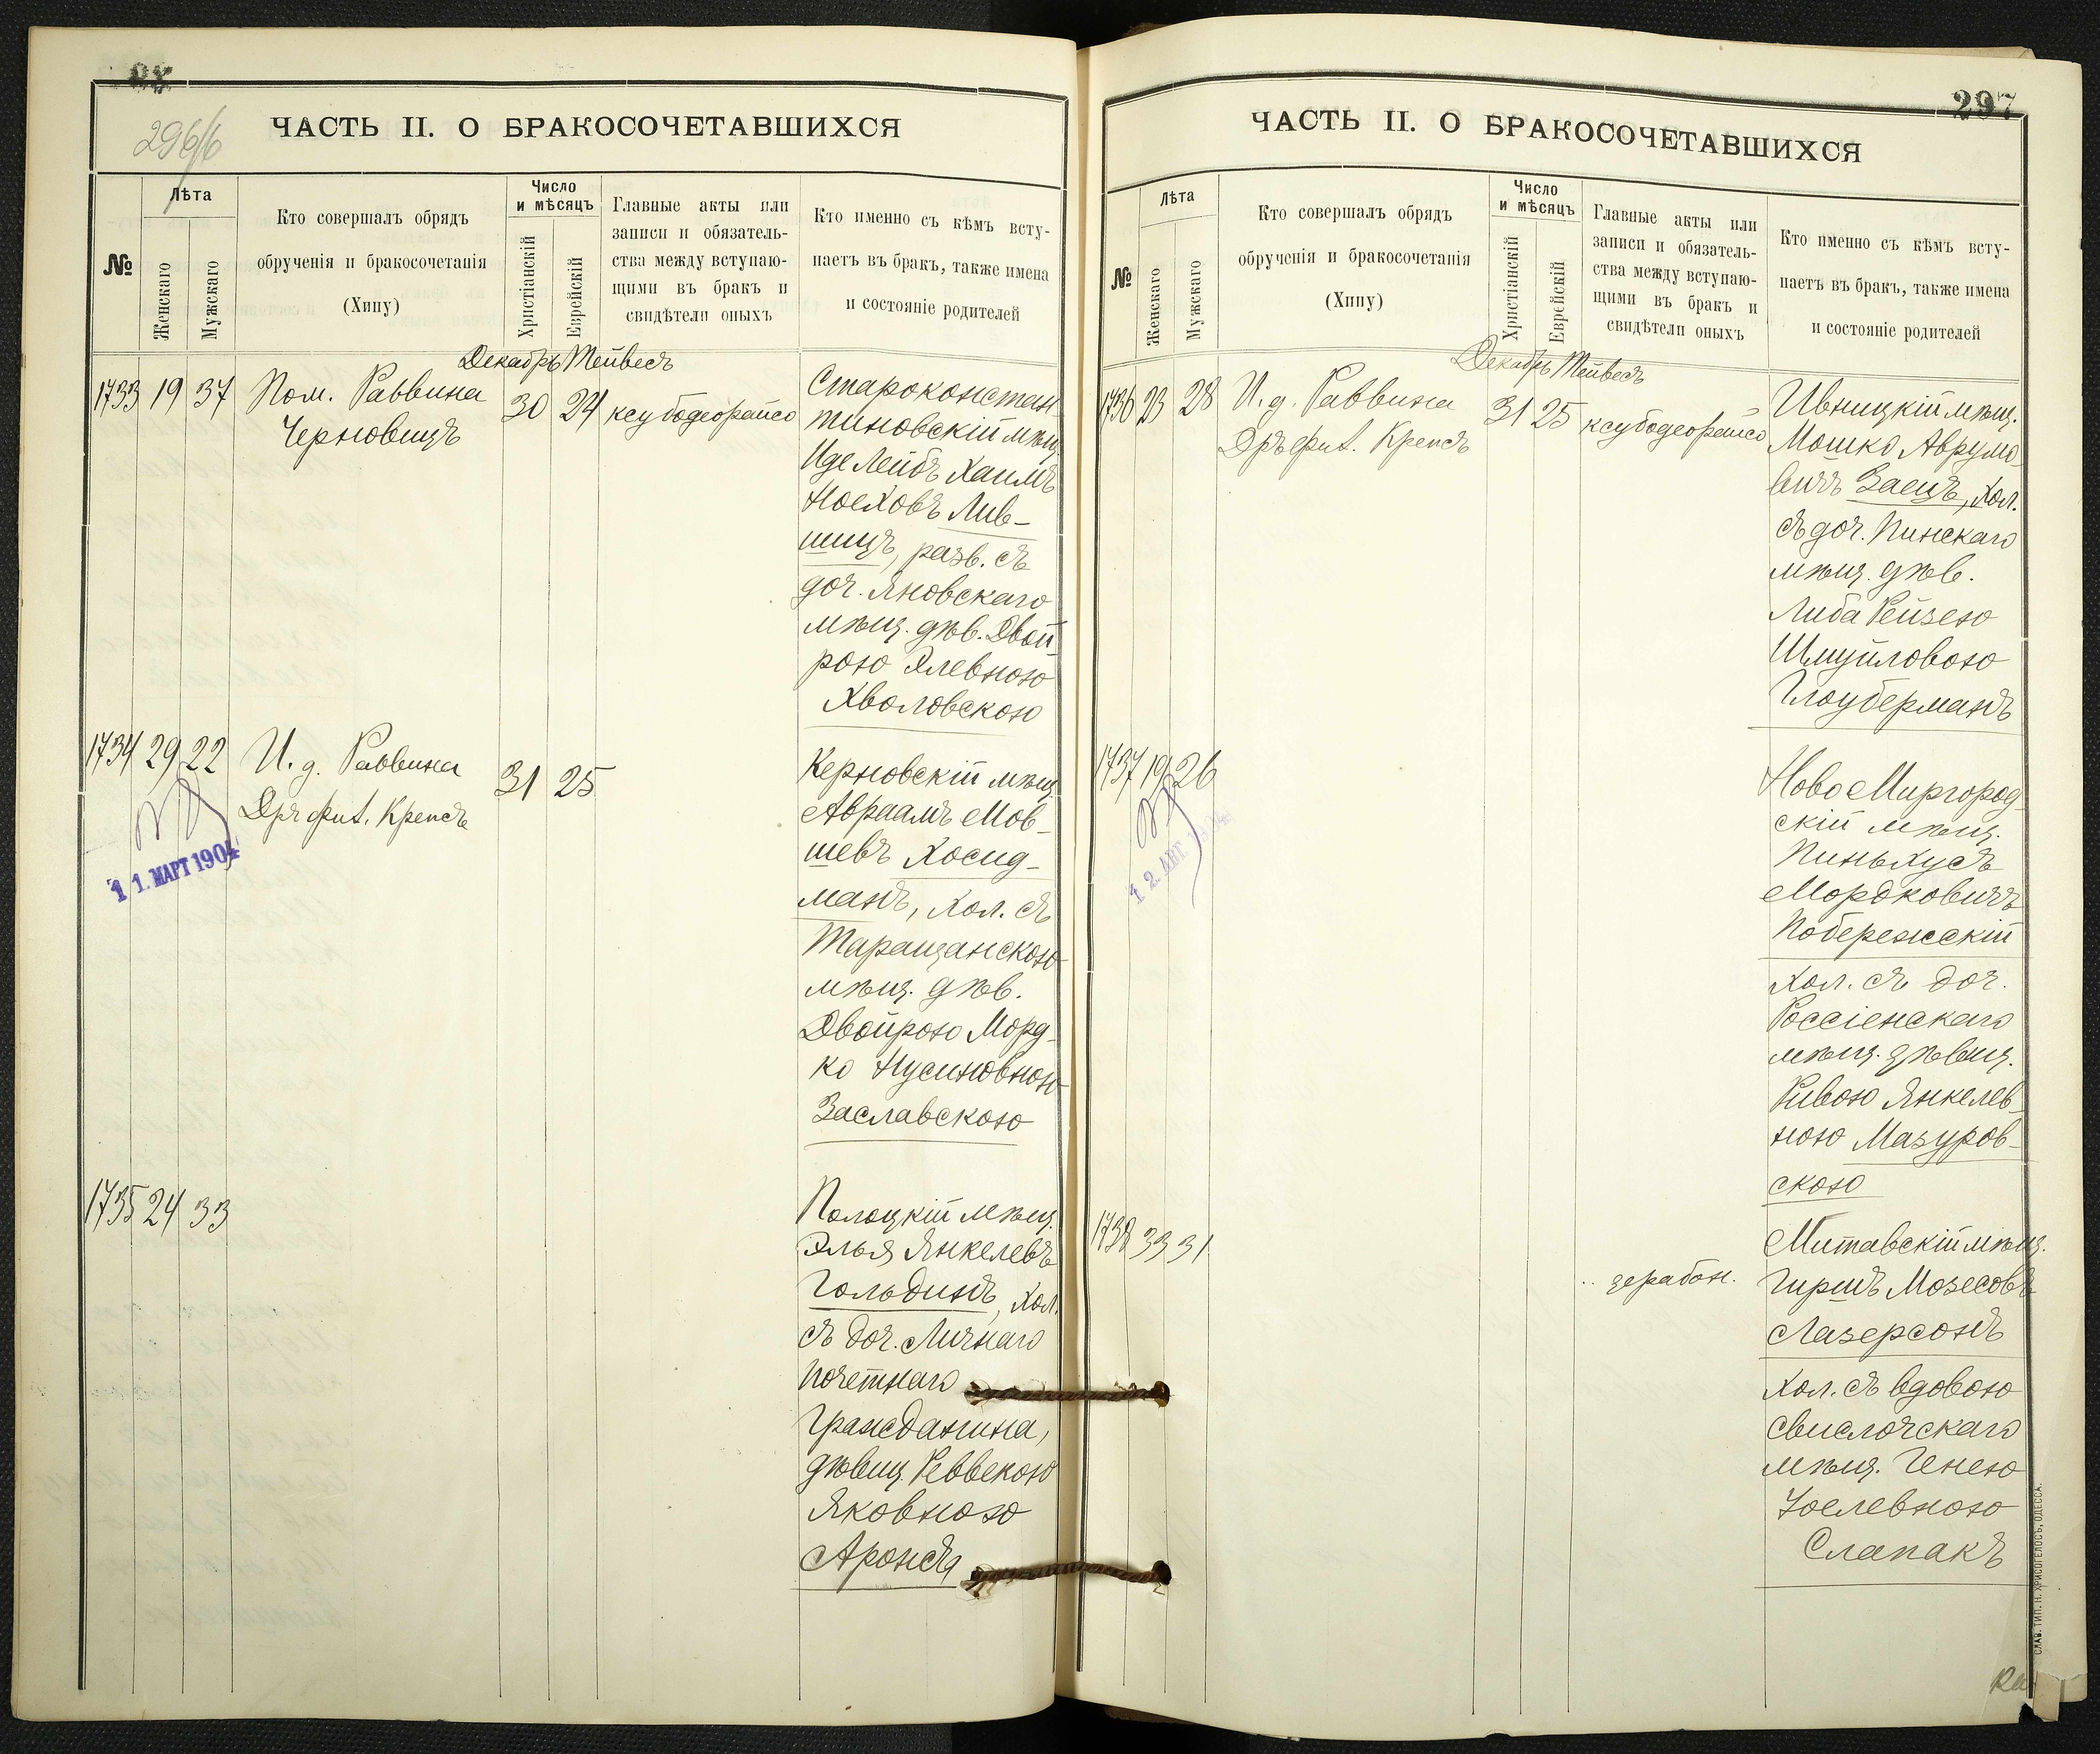 296/б
ЧАСТЬ II. О БРАКОСОЧЕТАВШИХСЯ
№
Лѣта
Женскаго
Мужскаго
Кто совершалъ обрядъ
обрученія и бракосочетанія
(Хипу)
Число
и мѣсяцъ
Христіанскій
Еврейскій
Главные акты или
записи и обязатель-
ства между вступаю-
щими въ бракъ и
свидѣтели оныхъ
Кто именно съ кѣмъ всту-
паетъ въ бракъ, также имена
и состояніе родителей
Декабрь Тейвесъ
1733 19 37 Пом. Раввина
Черновицъ
30 24 ксубодеорайсо
Староконстан-
тиновскій мѣщ.
Иде Лейбъ Хаимъ
Ноеховъ Лив-
шицъ, разв. съ
доч. Яновскаго
мѣщ. дѣв. Двой-
рою Элевною
Хволовскою
1734 29 22 И. д. Раввина
Дръ фил. Крепсъ
31 25
11. МАРТ 1904
Керновскій мѣщ.
Авраамъ Мов-
шевъ Хосид-
манъ, хол. съ
Таращанскою
мѣщ. дѣв.
Двойрою Морд-
ко Нусиновною
Заславскою
1735 24 33
Полоцкій мѣщ.
Элья Янкелевъ
Гольдинъ, хол.
съ доч. Личнаго
почетнаго
гражданина,
дѣвиц. Реввекою
Яковною
Аронсъ
297
ЧАСТЬ II. О БРАКОСОЧЕТАВШИХСЯ
№
Лѣта
Женскаго
Мужскаго
Кто совершалъ обрядъ
обрученія и бракосочетанія
(Хипу)
Число
и мѣсяцъ
Христіанскій
Еврейскій
Главные акты или
записи и обязатель-
ства между вступаю-
щими въ бракъ и
свидѣтели оныхъ
Кто именно съ кѣмъ всту-
паетъ въ бракъ, также имена
и состояніе родителей
Декабрь Тейвесъ
1736 23 28 И. д. Раввина
Дръ фил. Крепсъ
31 25 ксубодеорайсо
Ивницкій мѣщ.
Мошко Аврумо-
вичъ Заецъ, хол.
съ доч. Пинскаго
мѣщ. дѣв.
Либа Рейзею
Шмуйловою
Глоуберманъ
1737 19 26
12. АВГ. 1904
Ново Миргород-
скій мѣщ.
Пиньхусъ
Мордковичъ
Побережскій
хол. съ доч.
Россіенскаго
мѣщ. дѣвиц.
Ривою Янкелев-
ною Мазуров-
скою
1738 33 31
зерабон.
Митавскій мѣщ.
Гиршъ Мозесовъ
Лазерсонъ
хол. съ вдовою
свислочскаго
мѣщ. Генею
Іоселевною
Слапакъ
СЛАВ. ТИП. Н. ХРИСОГЕЛОСЪ, ОДЕССА.